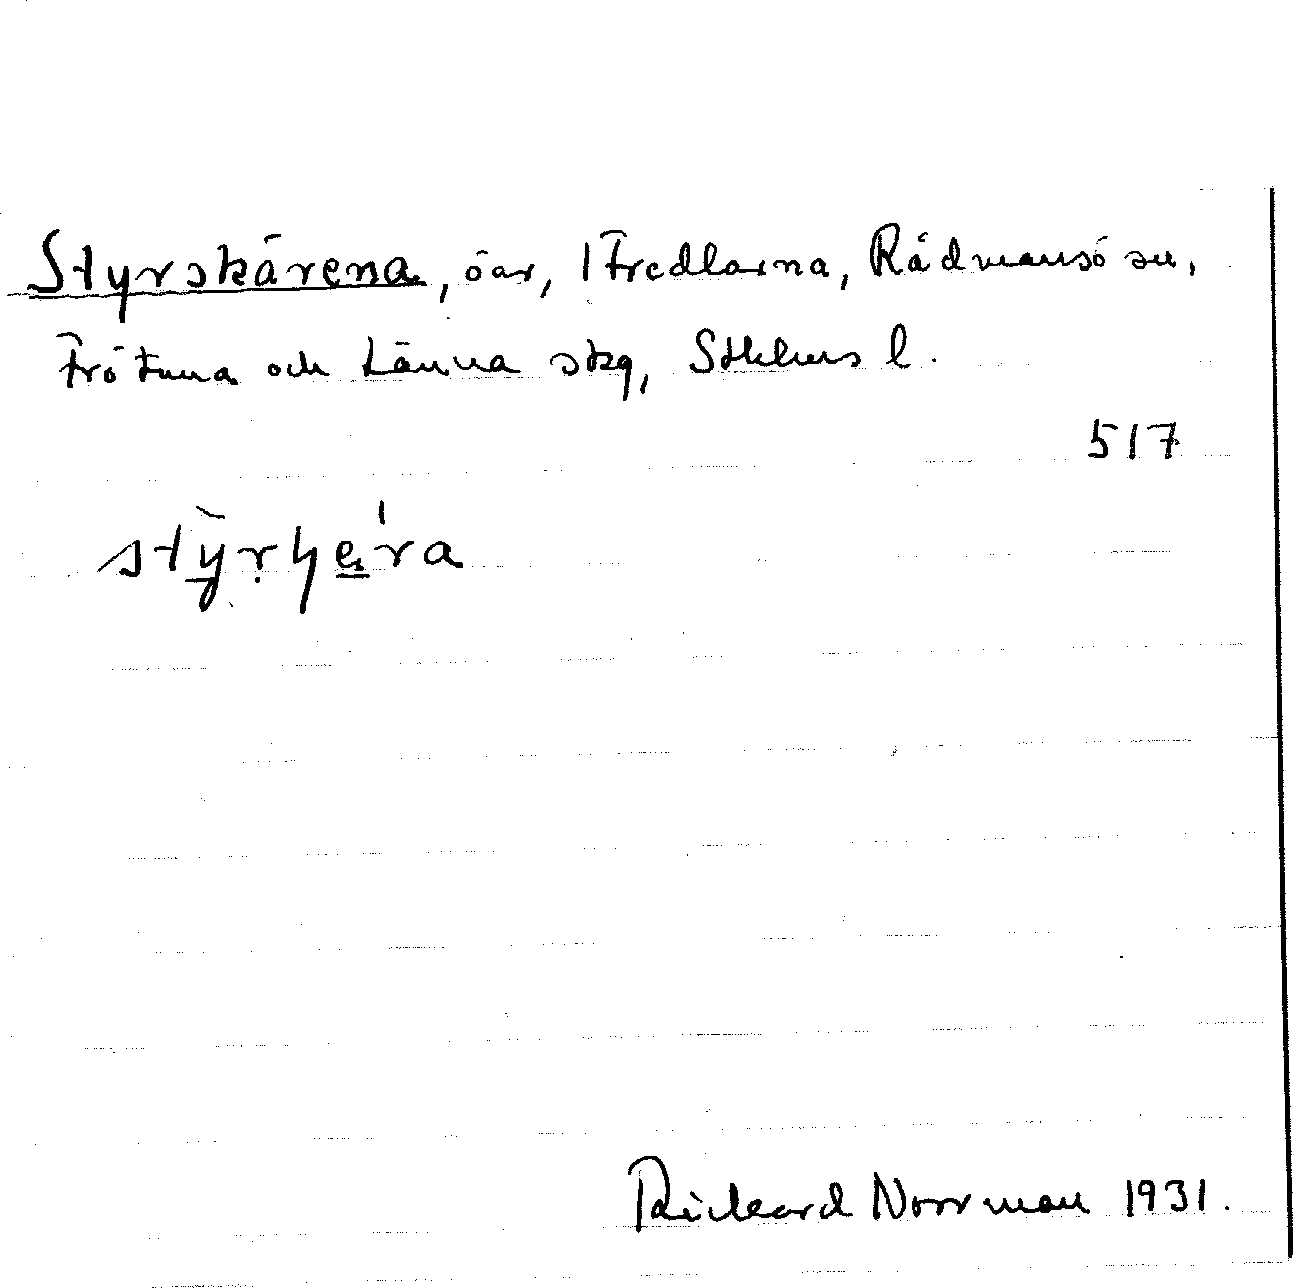 Styrskären​a, öar, i Fredlarna, Rådmansö sn,
Frötuna och Länna skg, Sthlms l.
517
Rickard Norrman 1931.